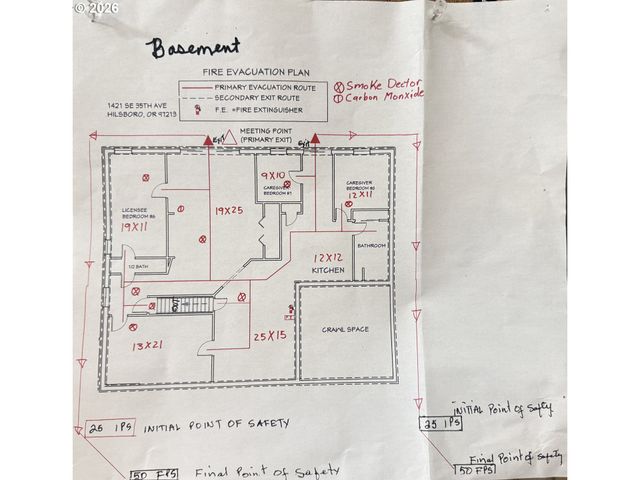 © 2026
Basement
FIRE EVACUATION PLAN
PRIMARY EVACUATION ROUTE
SECONDARY EXIT ROUTE
F.E. =FIRE EXTINGUISHER
Smoke Dector
Carbon Monxide
1421 SE 35TH AVE
HILSBORO, OR 97123
Exit
MEETING POINT
(PRIMARY EXIT)
Exit
9X10
CAREGIVER
BEDROOM #1
CAREGIVER
BEDROOM #2
12X11
LICENSEE
BEDROOM #6
19X11
19X25
BATHROOM
12X12
KITCHEN
1/2 BATH
13X21
25X15
CRAWL SPACE
25 IPS INITIAL POINT OF SAFETY
50 FPS Final Point of Safety
INITIAL Point of Safty
25 IPS
Final Point of Safety
50 FPS